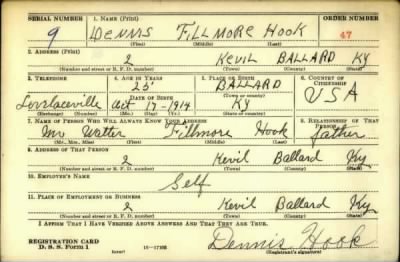 SERIAL NUMBER 1. NAME (Print) ORDER NUMBER
9 DENNIS FILLMORE HOOK 47
(First) (Middle) (Last)
2. ADDRESS (Print)
2 KEVIL BALLARD KY
(Number and street or R. F. D. number) (Town) (County) (State)
3. TELEPHONE 4. AGE IN YEARS 5. PLACE OF BIRTH 6. COUNTRY OF CITIZENSHIP
25 BALLARD
DATE OF BIRTH (Town or county)
Lovelaceville Oct 17-1914 KY USA
(Exchange) (Number) (Mo.) (Day) (Yr.) (State or country)
7. NAME OF PERSON WHO WILL ALWAYS KNOW YOUR ADDRESS 8. RELATIONSHIP OF THAT PERSON
Mr Walter Fillmore Hook father
(Mr., Mrs., Miss) (First) (Middle) (Last)
9. ADDRESS OF THAT PERSON
2 Kevil Ballard Ky
(Number and street or R. F. D. number) (Town) (County) (State)
10. EMPLOYER'S NAME
Self
11. PLACE OF EMPLOYMENT OR BUSINESS
2 Kevil Ballard Ky
(Number and street or R. F. D. number) (Town) (County) (State)
I AFFIRM THAT I HAVE VERIFIED ABOVE ANSWERS AND THAT THEY ARE TRUE.
REGISTRATION CARD
D. S. S. Form 1 (over) 16-17105 Dennis Hook
(Registrant's signature)